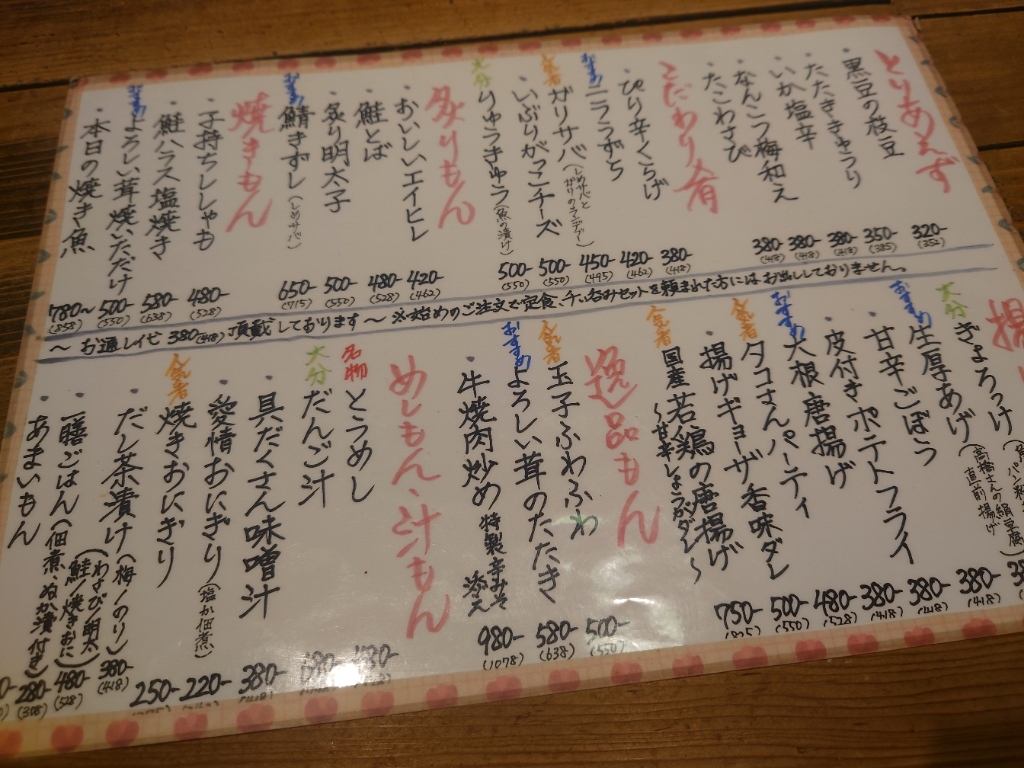 とりあえず
・黒豆の枝豆 320- (352)
・たたききゅうり 350- (385)
・いか塩辛 380- (418)
・なんこつ梅和え 380- (418)
・たこわさび 380- (418)
こだわり肴
・ぴり辛くらげ 380- (418)
おすすめ ニラうずら 420- (462)
ガリサバ (しめサバと 450- (495)
いぶりがっこチーズ 500- (550)
大分 りゅうきゅう (魚の漬け) 500- (550)
炙りもん
・おいしいエイヒレ 420- (462)
・鮭とば 480- (528)
・炙り明太子 500- (550)
おすすめ 鯖きずし (しめサバ) 650- (715)
焼きもん
・子持ちししゃも 480- (528)
・鮭ハラス塩焼き 580- (638)
おすすめ よろしい茸焼いただけ 500- (550)
・本日の焼き魚 780〜 (858)
〜 お通し代 380(418) 頂戴しております 〜 ※始めのご注文で定食、チョイのみセットを頼まれた方にはお出ししておりません。
揚
大分 ぎょろっけ
生厚あげ (高橋さんの絹豆腐 直前揚げ) 380- (418)
おすすめ 甘辛ごぼう 380- (418)
・皮付きポテトフライ 380- (418)
おすすめ 大根唐揚げ 480- (528)
タコさんパーティ 500- (550)
・揚げギョーザ香味ダレ 750-
国産若鶏の唐揚げ
逸品もん
玉子ふわふわ 500- (550)
おすすめ よろしい茸のたたき 580- (638)
・牛焼肉炒め 特製辛みそ 添え 980- (1078)
めしもん・汁もん
名物 とうめし
大分 だんご汁
・具だくさん味噌汁 380-
・愛情おにぎり (塩か佃煮) 220-
焼きおにぎり 250-
・だし茶漬け (梅・のり) 380- (418)
(わさび・明太 鮭・焼きおに) 480- (528)
・一膳ごはん (佃煮、ぬか漬付き) 280- (308)
・あまいもん